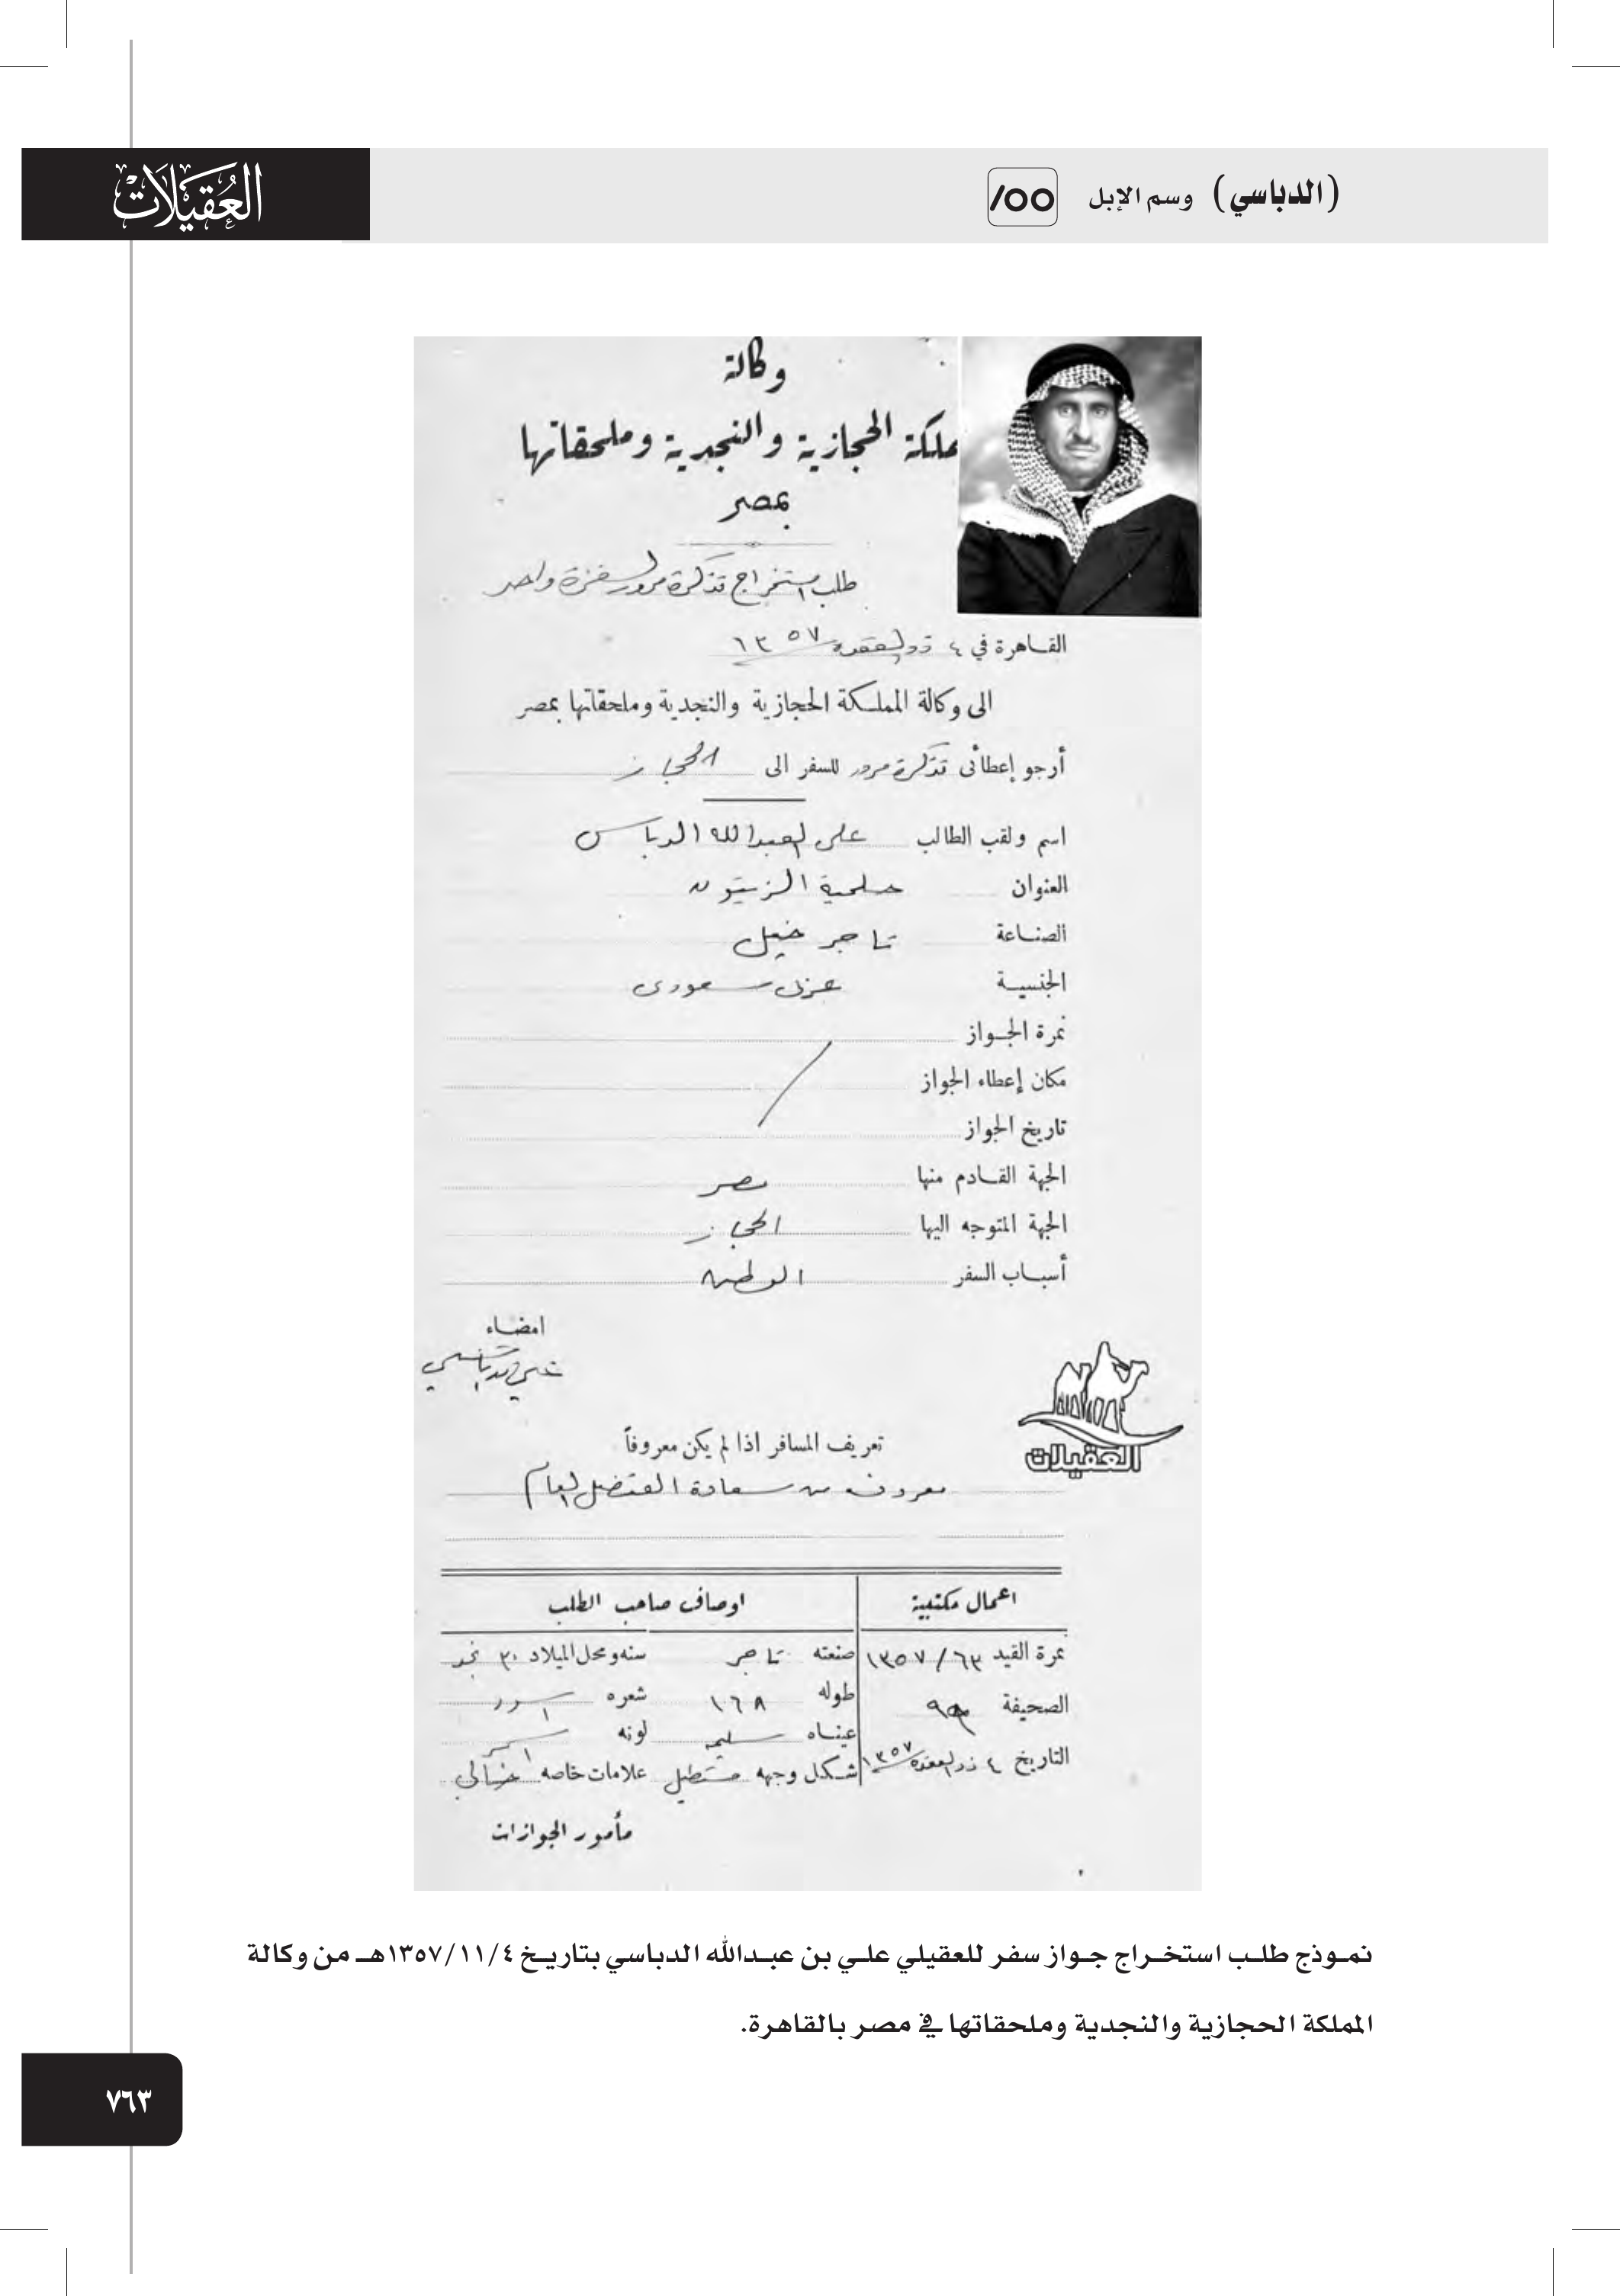 العقيلات
(الدباسي) وسم الإبل
وكالة
مملكة الحجازية والنجدية وملحقاتها
بمصر
طلب استخراج تذكرة مرور لسفرة واحد
القاهرة في ٤ ذو القعدة ١٣٥٧
الى وكالة المملكة الحجازية والنجدية وملحقاتها بمصر
أرجو إعطائى تذكرة مرور للسفر الى الحجاز
اسم ولقب الطالب على العبدالله الدباسى
العنوان حلمية الزيتون
الصناعة تاجر خيل
الجنسية عربى سعودى
نمرة الجواز
مكان إعطاء الجواز
تاريخ الجواز
الجهة القادم منها مصر
الجهة المتوجه اليها الحجاز
أسباب السفر الوطن
امضاء
علي الدباسي
العقيلات
تعريف المسافر اذا لم يكن معروفاً
معروف من سعادة القنصل العام
اعمال مكتبية اوصاف صاحب الطلب
نمرة القيد ٦٣/١٣٥٧ صنعته تاجر سنه ومحل الميلاد ٣٠ نجد
الصحيفة طوله ١٦٨ شعره اسود
عيناه سليمه لونه اسمر
التاريخ ٤ ذو القعدة ١٣٥٧ شكل وجهه مستطيل علامات خاصه خالي
مأمور الجوازات
نموذج طلب استخراج جواز سفر للعقيلي علي بن عبدالله الدباسي بتاريخ ١٣٥٧/١١/٤هـ من وكالة
المملكة الحجازية والنجدية وملحقاتها في مصر بالقاهرة.
٧٦٣